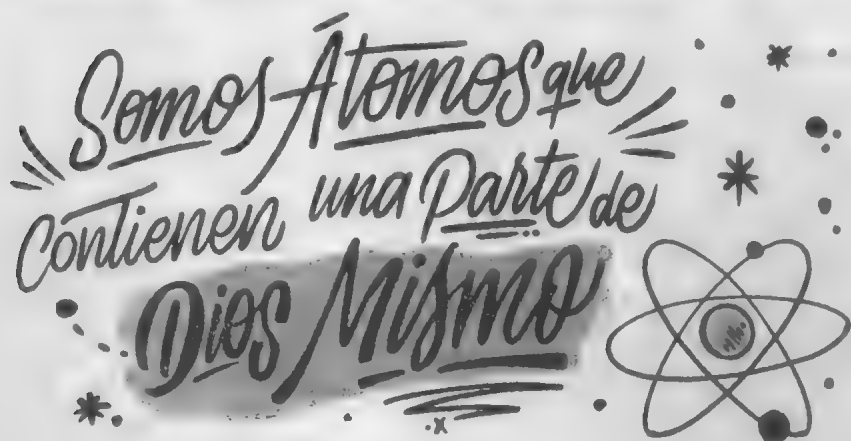 Somos Átomos que
contienen una Parte de
Dios Mismo